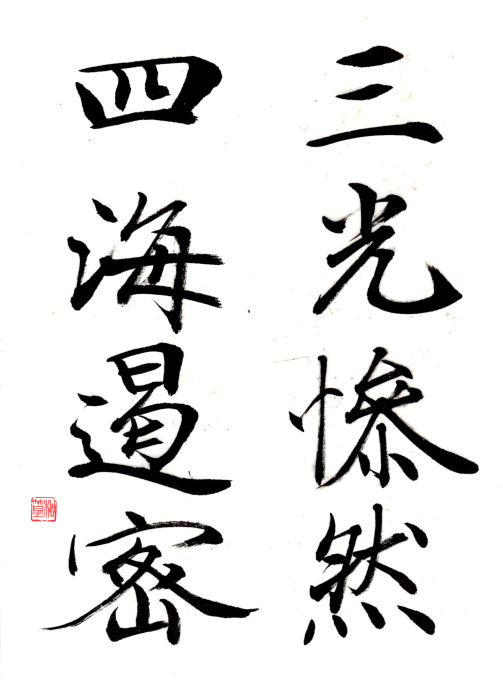 三光惨然
四海遏密